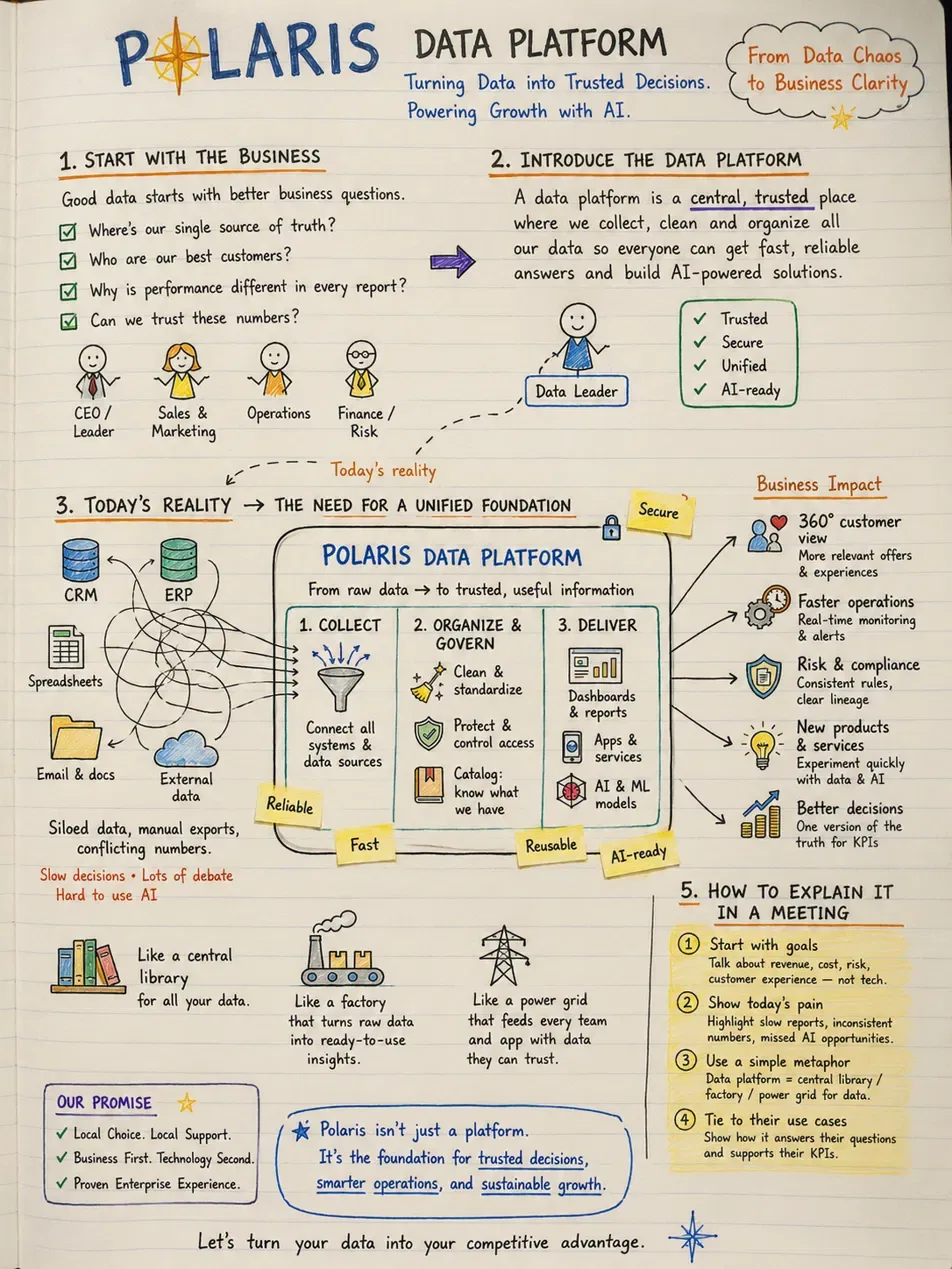 POLARIS DATA PLATFORM
Turning Data into Trusted Decisions.
Powering Growth with AI.
From Data Chaos
to Business Clarity
1. START WITH THE BUSINESS
Good data starts with better business questions.
Where's our single source of truth?
Who are our best customers?
Why is performance different in every report?
Can we trust these numbers?
CEO /
Leader
Sales &
Marketing
Operations
Finance /
Risk
2. INTRODUCE THE DATA PLATFORM
A data platform is a central, trusted place
where we collect, clean and organize all
our data so everyone can get fast, reliable
answers and build AI-powered solutions.
Data Leader
✓ Trusted
✓ Secure
✓ Unified
✓ AI-ready
Today's reality
3. TODAY'S REALITY → THE NEED FOR A UNIFIED FOUNDATION
CRM
ERP
Spreadsheets
Email & docs
External
data
Siloed data, manual exports,
conflicting numbers.
Slow decisions • Lots of debate
Hard to use AI
Secure
POLARIS DATA PLATFORM
From raw data → to trusted, useful information
1. COLLECT
Connect all
systems &
data sources
2. ORGANIZE &
GOVERN
Clean &
standardize
Protect &
control access
Catalog:
know what
we have
3. DELIVER
Dashboards
& reports
Apps &
services
AI & ML
models
Reliable
Fast
Reusable
AI-ready
Business Impact
360° customer
view
More relevant offers
& experiences
Faster operations
Real-time monitoring
& alerts
Risk & compliance
Consistent rules,
clear lineage
New products
& services
Experiment quickly
with data & AI
Better decisions
One version of the
truth for KPIs
Like a central
library
for all your data.
Like a factory
that turns raw data
into ready-to-use
insights.
Like a power grid
that feeds every team
and app with data
they can trust.
5. HOW TO EXPLAIN IT
IN A MEETING
1 Start with goals
Talk about revenue, cost, risk,
customer experience — not tech.
2 Show today's pain
Highlight slow reports, inconsistent
numbers, missed AI opportunities.
3 Use a simple metaphor
Data platform = central library /
factory / power grid for data.
4 Tie to their use cases
Show how it answers their questions
and supports their KPIs.
OUR PROMISE
✓ Local Choice. Local Support.
✓ Business First. Technology Second.
✓ Proven Enterprise Experience.
Polaris isn't just a platform.
It's the foundation for trusted decisions,
smarter operations, and sustainable growth.
Let's turn your data into your competitive advantage.